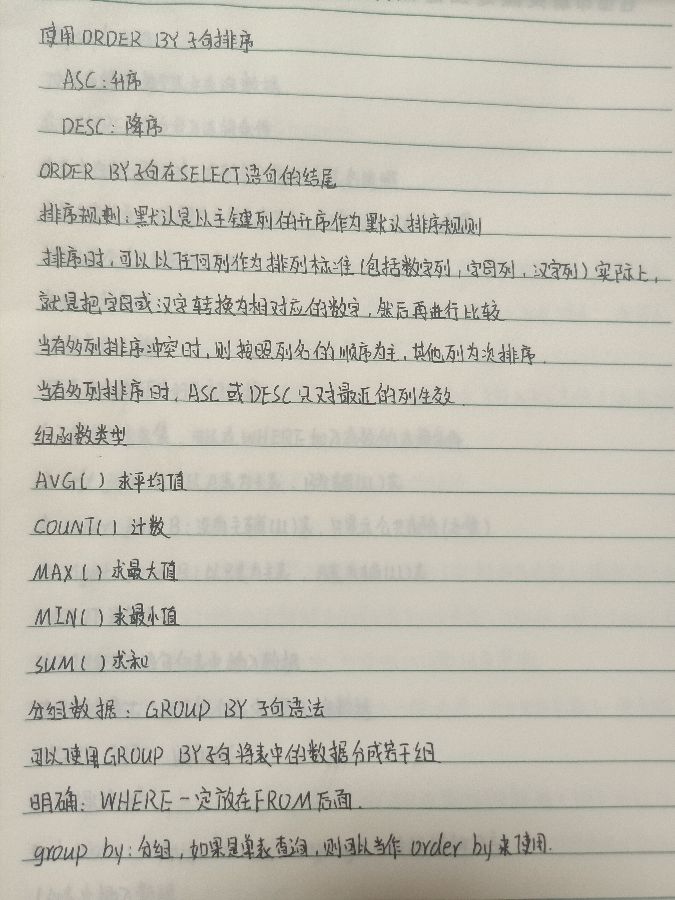 使用ORDER BY子句排序
ASC:升序
DESC:降序
ORDER BY子句在SELECT语句的结尾
排序规则:默认是以主键列的升序作为默认排序规则
排序时,可以以任何列作为排列标准(包括数字列,字母列,汉字列)实际上,
就是把字母或汉字转换为相对应的数字,然后再进行比较
当有多列排序冲突时,则按照列名的顺序为主,其他列为次排序.
当有多列排序时,ASC或DESC只对最近的列生效.
组函数类型
AVG()求平均值
COUNT()计数
MAX()求最大值
MIN()求最小值
SUM()求和
分组数据:GROUP BY子句语法
可以使用GROUP BY子句将表中的数据分成若干组
明确:WHERE一定放在FROM后面.
group by:分组,如果是单表查询,则可以当作order by来使用.